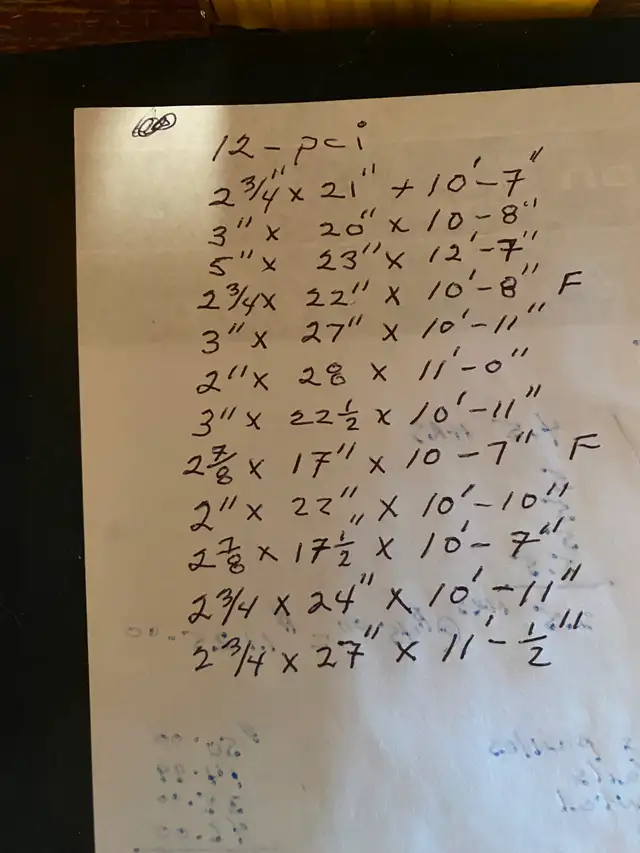 12 - pci
2 3/4" x 21" + 10'-7"
3" x 20" x 10-8"
5" x 23" x 12'-7"
2 3/4 x 22" x 10'-8" F
3" x 27" x 10'-11"
2" x 28 x 11'-0"
3" x 22 1/2 x 10'-11"
2 7/8 x 17" x 10-7" F
2" x 22" x 10'-10"
2 7/8 x 17 1/2" x 10'-7"
2 3/4 x 24" x 10'-11"
2 3/4 x 27" x 11'-1/2"